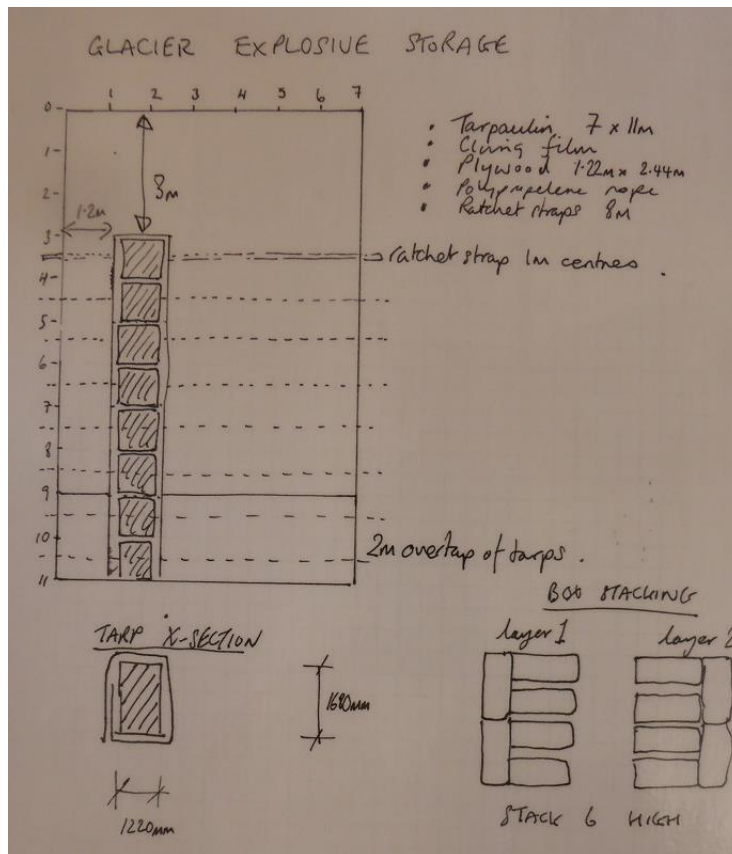 GLACIER EXPLOSIVE STORAGE
1 2 3 4 5 6 7
0
1
2
3
4
5
6
7
8
9
10
11
3m
1.2m
• Tarpaulin 7 x 11m
• Cling film
• Plywood 1.22m x 2.44m
• Polypropelene rope
• Ratchet straps 8m
ratchet strap 1m centres.
2m overlap of tarps.
TARP X-SECTION
1220mm
BOX STACKING
layer 1
layer 2
STACK 6 HIGH